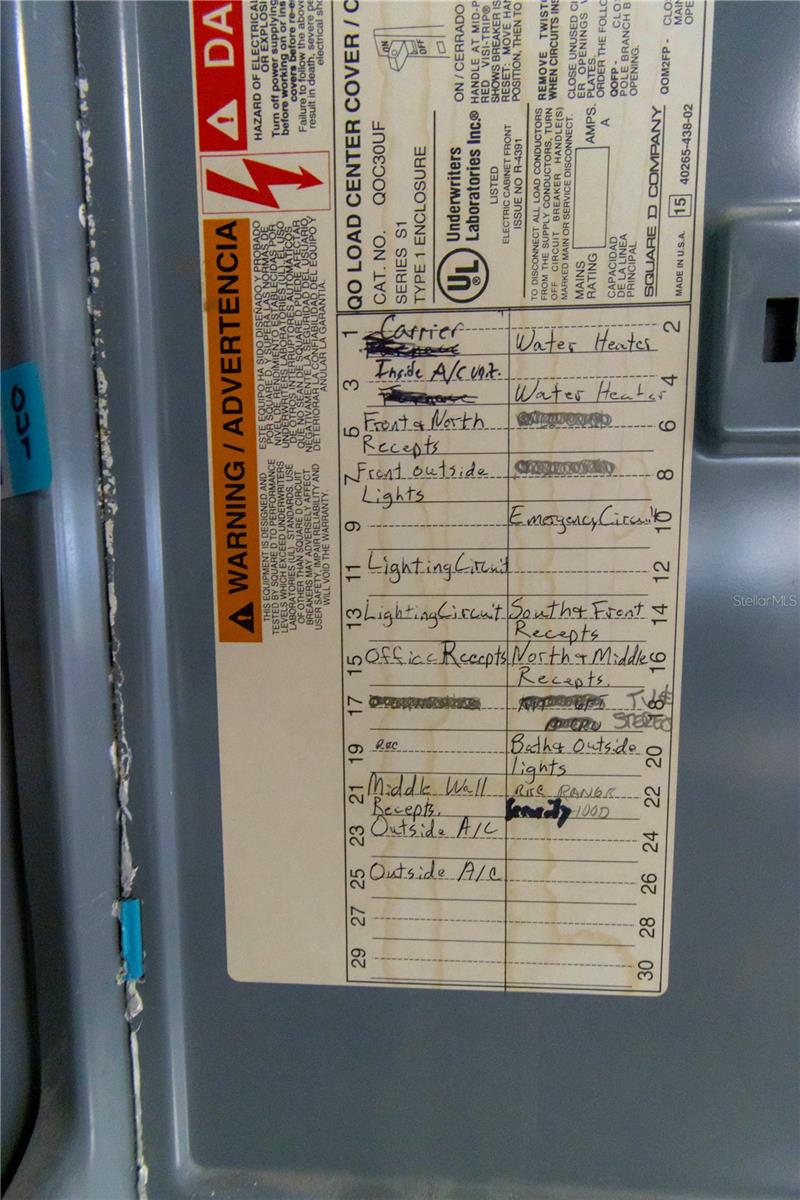 DA
HAZARD OF ELECTRICAL
OR EXPLOSI
Turn off power supplying
before working on or ins
covers before re-en
Failure to follow the above
result in death, severe pe
electrical sho
WARNING / ADVERTENCIA
ESTE EQUIPO HA SIDO DISEÑADO Y PROBADO
POR SQUARE D, Y OPERA EN NORMAS DE
NIVEL DE RENDIMIENTO ESTABLECIDAS POR
UNDERWRITERS LABORATORIES (UL). EL USO
DE OTROS INTERRUPTORES AUTOMATICOS
QUE NO SEAN DE SQUARE D PUEDE AFECTAR
NEGATIVAMENTE LA SEGURIDAD DEL USUARIO,
DETERIORAR LA CONFIABILIDAD DEL EQUIPO Y
ANULAR LA GARANTIA.
THIS EQUIPMENT IS DESIGNED AND
TESTED BY SQUARE D TO PERFORMANCE
LEVELS WHICH EXCEED UNDERWRITERS
LABORATORIES (UL) STANDARDS. USE
OF OTHER THAN SQUARE D CIRCUIT
BREAKERS MAY ADVERSELY AFFECT
USER SAFETY, IMPAIR RELIABILITY AND
WILL VOID THE WARRANTY.
QO LOAD CENTER COVER / C
CAT. NO. QOC30UF
SERIES S1
TYPE 1 ENCLOSURE
ON
OFF
ON / CERRADO
HANDLE AT MID-P
RED VISI-TRIP®
SHOWS BREAKER IS
RESET: MOVE HAN
POSITION, THEN TO
UL
Underwriters
Laboratories Inc.®
LISTED
ELECTRIC CABINET FRONT
ISSUE NO R-4391
REMOVE TWISTO
WHEN CIRCUITS INS
CLOSE UNUSED CI
ER OPENINGS
PLATES.
ORDER THE FOLLO
QOFP - CLO
POLE BRANCH B
OPENING.
QOM2FP - CLO
MAIN
OPE
TO DISCONNECT ALL LOAD CONDUCTORS
FROM THE SUPPLY CONDUCTORS, TURN
OFF CIRCUIT BREAKER HANDLE(S)
MARKED MAIN OR SERVICE DISCONNECT.
MAINS
RATING
AMPS.
A
CAPACIDAD
DE LA LINEA
PRINCIPAL
SQUARE D COMPANY
MADE IN U.S.A.
15
40265-438-02
OUT
1 Carrier
Water Heater 2
Inside A/C unit.
3
Water Heater 4
5 Front & North
Recepts
6
7 Front outside
Lights
8
9
Emergency Circuit 10
11 Lighting Circuit
12
13 Lighting Circuit
South & Front
Recepts 14
15 Office Recepts
North & Middle
Recepts. 16
17
TV &
STEREO 18
19 Rec
Bath & Outside
lights 20
21 Middle Wall
Recepts.
RANGE
HOOD 22
23 Outside A/C
24
25 Outside A/C
26
27
28
29
30
StellarMLS